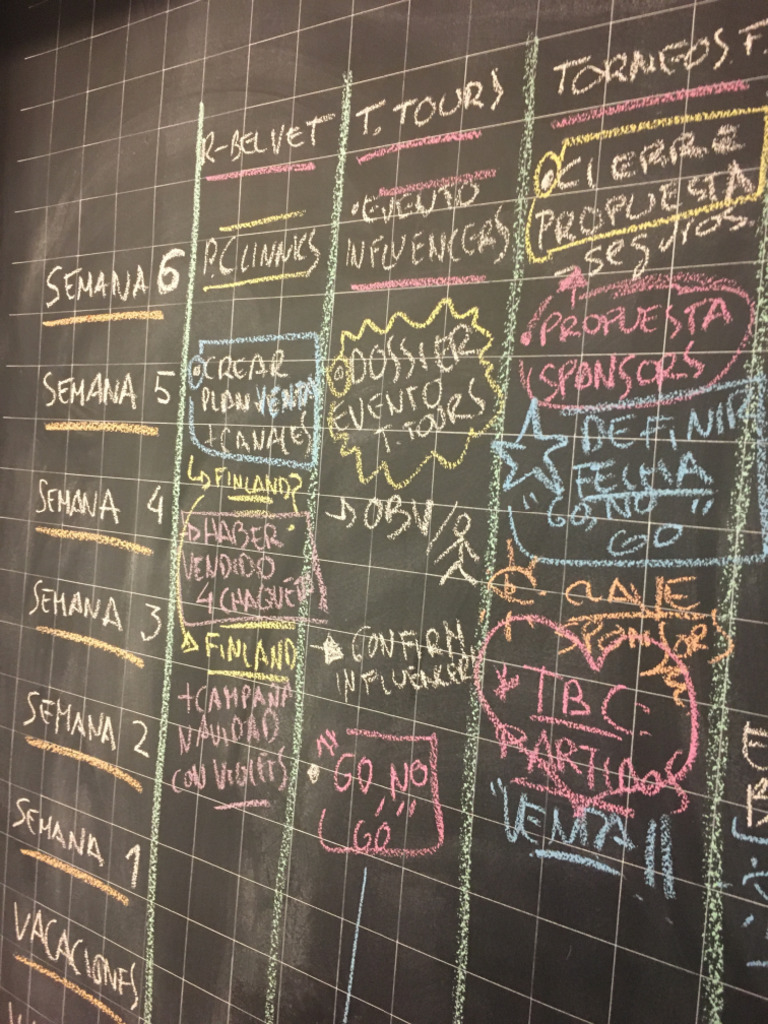 R-BELVET
T. TOURS
TORNEOS. F.
SEMANA 6
P. CLINNICS
• EVENTO
INFLUENCERS
CIERRE
PROPUESTA
SEGUROS.
SEMANA 5
CREAR
PLAN VENTA
+ CANALES
DOSSIER
EVENTO
T. TOURS
• PROPUESTA
SPONSORS
SEMANA 4
↳ FINLAND?
→ OBV
DEFINIR
FECHA
"GO, NO"
GO
SEMANA 3
→ HABER
VENDIDO
4 CHAQUET
FINLAND
→ CONFIRM.
INFLUENCER
CLAVE
SPONSORS
SEMANA 2
+ CAMPAÑA
NAVIDAD
CON VIOLETS
• GO NO
GO
* TBC.
PARTIDOS
"VENTA"
SEMANA 1
VACACIONES